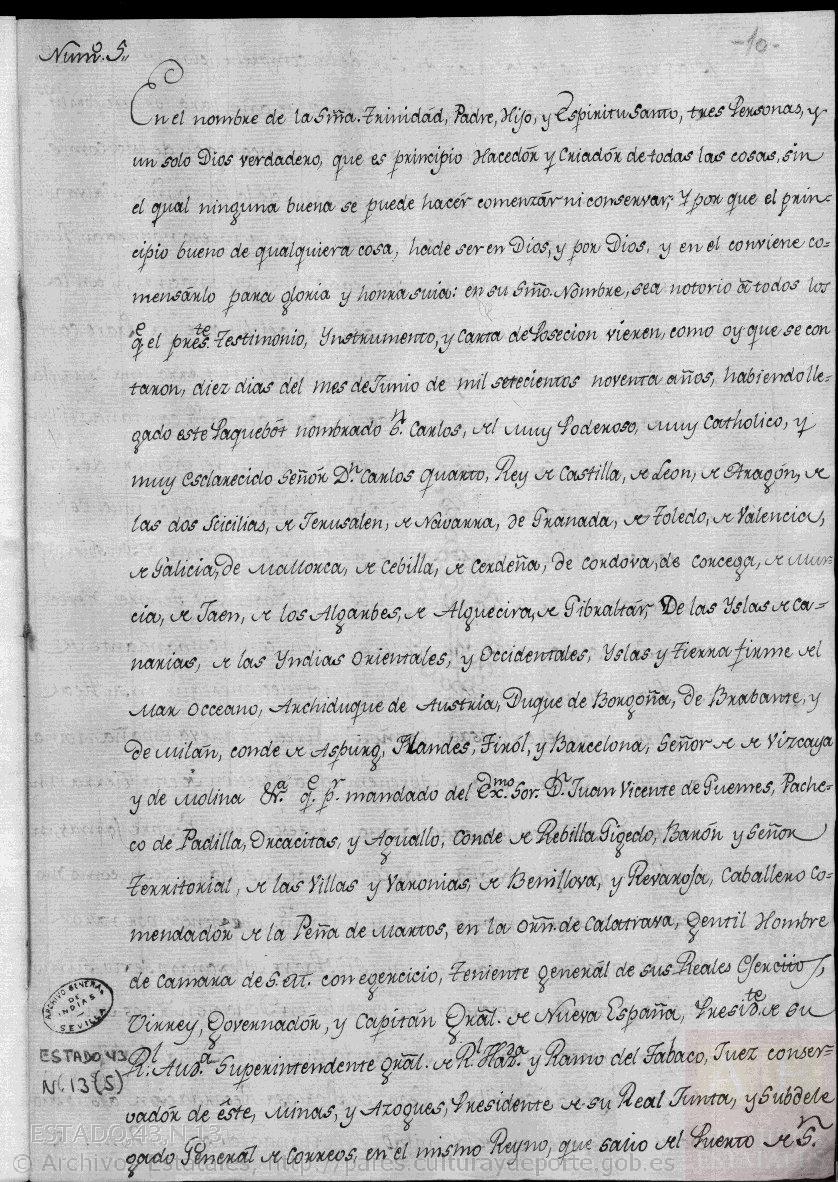 Numº. 5.,
-10-
En el nombre de la Sm̃a. Trinidád, Padre, Hijo, y Espiritu Santo, tres Personas, y
un solo Dios verdadero, que es principio Hacedór y Criadór de todas las cosas, sin
el qual ninguna buena se puede hacér comenzár ni conservar; Y por que el prin-
cipio bueno de qualquiera cosa, hade ser en Dios, y por Dios, y en el conviene co-
mensárlo para gloria y honra suia: en su Sm̃o. Nombre, sea notorio â todos los
qᵉ el presᵗᵉ. Testimonio, Ynstrumento, y Carta de Posecion vieren, como oy que se con
taron, diez dias del mes de Junio de mil setecientos noventa años, habiendo lle-
gado este Paquebót nombrado Sⁿ. Carlos, del muy Poderoso, muy Catholico, y
muy esclarecido Señór Dⁿ. Carlos Quarto, Rey de Castilla, de Leon, de Aragón, de
las dos Scicilias, de Jerusalen, de Navarra, de Granada, de Toledo, de Valencia,
de Galicia, de Mallorca, de Cebilla, de Cerdeña, de Cordova, de Corcega, de Mur-
cia, de Jaen, de los Algarbes, de Algucira, de Gibraltár, De las Yslas de Ca-
narias, de las Yndias Orientales, y Occidentales, Yslas y Tierra firme del
Mar Occeano, Archiduque de Austria, Duque de Borgoña, de Brabante, y
de Milán, conde de Aspurg, Flandes, Tiról, y Barcelona, Señor de de Vizcaya
y de Molina &ᵃ. qᵉ. pʳ. mandado del Exᵐᵒ. Sor. Dⁿ. Juan Vicente de Guemes, Pache-
co de Padilla, Orcacitas, y Aguallo, Conde de Rebilla Gigedo, Barón y Señor
Territorial, de las Villas y Varonias, de Benillova, y Revarosa, Caballero Co-
mendadór de la Peña de Martos, en la Orñ. de Calatrava, Gentil Hombre
de camara de S. M. con egercicio, Teniente generál de sus Reales Egercitos,
Virrey, Governadór, y Capitán Gral. de Nueva España, Presidᵗᵉ. de su
Rˡ. Audᵃ. Superintendente gral. de Rˡ. Hazᵃ. y Ramo del Tabaco, Juez conser-
vadór de éste, Minas, y Azogues, Presidente de su Real Junta, y Subdele
gado Generál de Correos, en el mismo Reyno, que salio del Puerto de Sⁿ.
ARCHIVO GENERAL
DE
INDIAS
SEVILLA
ESTADO, 43
N. 13 (5)
ESTADO,43,N.13
© Archivos Estatales, http://pares.culturaydeporte.gob.es